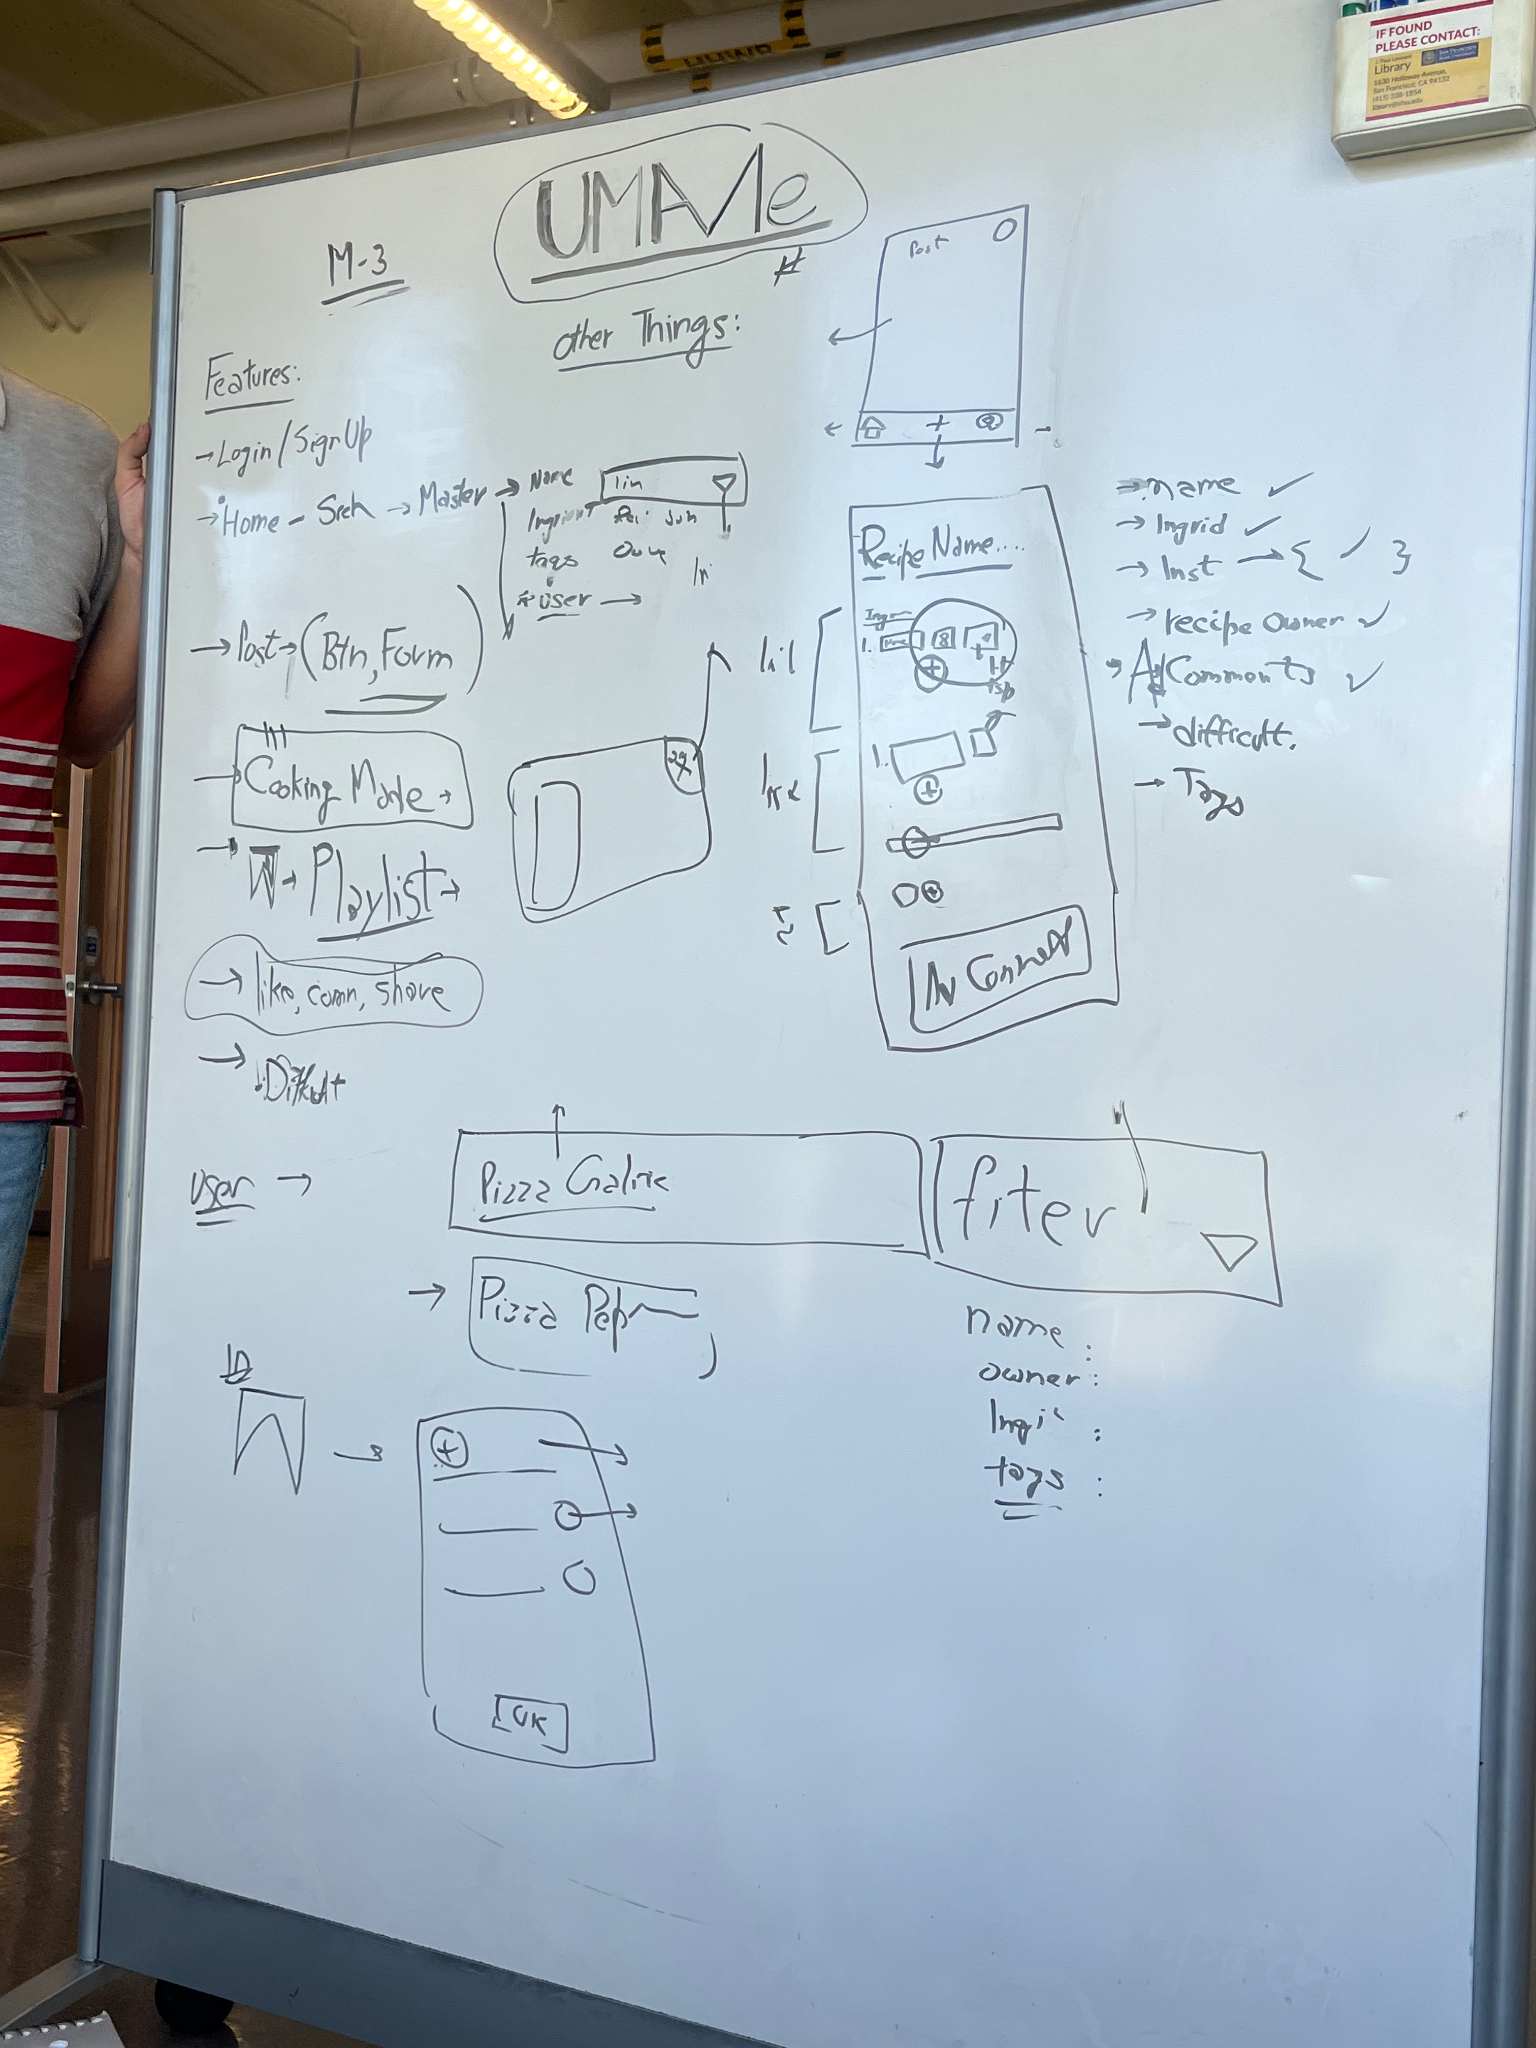 IF FOUND
PLEASE CONTACT:
J. Paul Leonard
Library
1630 Holloway Avenue,
San Francisco, CA 94132
(415) 338-1854
UMAMe
M-3
other Things:
Post
Features:
→ Login/Sign Up
→ Home - Srch → Master → Name
Ingrient
tags
user →
lin
→ Post → (Btn, Form)
→ Cooking Mode →
→ Playlist →
→ like, comn, share
→ Difficult
Recipe Name....
Ingr
1.
1.
→ name ✓
→ Ingrid ✓
→ Inst → { ✓ }
→ recipe owner ✓
→ Comments ✓
→ difficult.
→ Tags
user →
Pizza
fiter
→ Pizza Pep
name :
owner :
Ingi :
tags :
OK